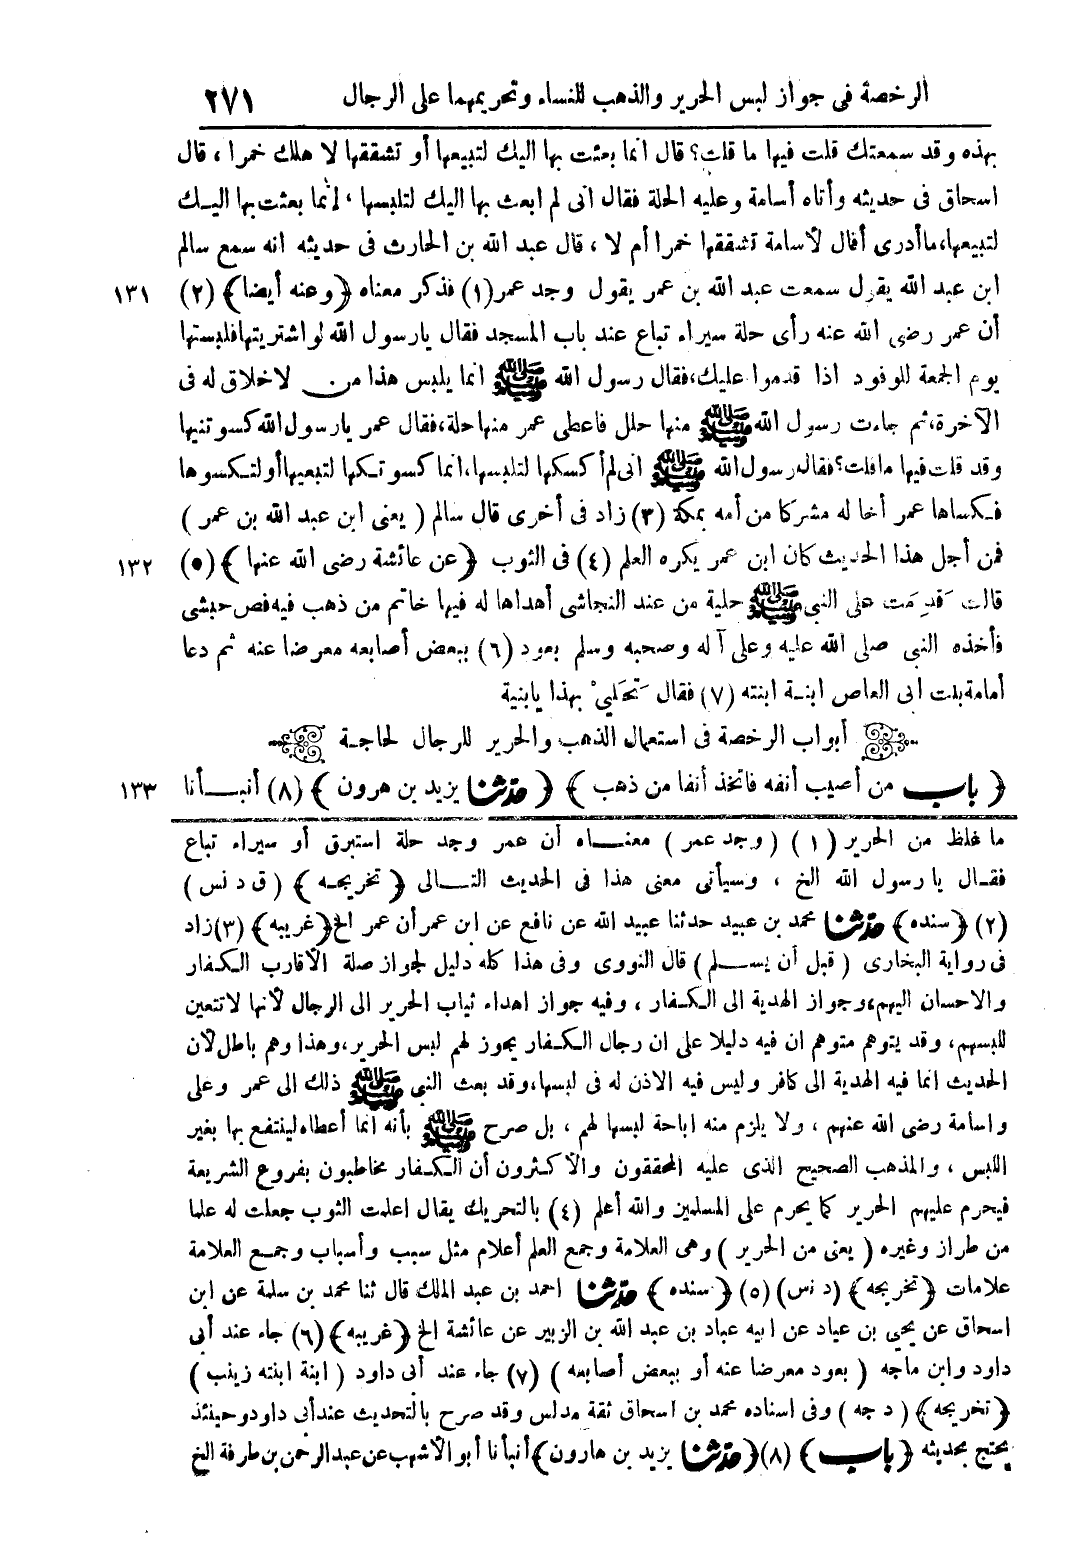 الرخصة فى جواز لبس الحرير والذهب للنساء وتحريمهما على الرجال ٢٧١
بهذه وقد سمعتك قلت فيها ما قلت؟ قال انما بعثت بها اليك لتبيعها أو تشققها لأهلك خمرا ، قال
اسحاق فى حديثه وأتاه أسامة وعليه الحلة فقال انى لم ابعث بها اليك لتلبسها ، انما بعثت بها اليك
لتبيعها،ما أدرى أقال لأسامة تشققها خمرا أم لا ، قال عبد الله بن الحارث فى حديثه انه سمع سالم
ابن عبد الله يقول سمعت عبد الله بن عمر يقول وجد عمر(١) فذكر معناه ﴿وعنه أيضا﴾ (٢) ١٣١
أن عمر رضى الله عنه رأى حلة سيراء تباع عند باب المسجد فقال يارسول الله لو اشتريتها فلبستها
يوم الجمعة للوفود اذا قدموا عليك،فقال رسول الله ﷺ انما يلبس هذا من لاخلاق له فى
الآخرة،ثم جاءت رسول الله ﷺ منها حلل فاعطى عمر منها حلة،فقال عمر يارسول الله كسوتنيها
وقد قلت فيها ماقلت؟ فقال رسول الله ﷺ انى لم أكسكها لتلبسها،انما كسوتكها لتبيعها أو لتكسوها
فكساها عمر أخا له مشركا من أمه بمكة (٣) زاد فى أخرى قال سالم ( يعنى ابن عبد الله بن عمر )
فمن أجل هذا الحديث كان ابن عمر يكره العلم (٤) فى الثوب ﴿عن عائشة رضى الله عنها﴾ (٥) ١٣٢
قالت قَدِمَت على النبى ﷺ حلية من عند النجاشى أهداها له فيها خاتم من ذهب فيه فص حبشى
فأخذه النبى صلى الله عليه وعلى آله وصحبه وسلم بعود (٦) ببعض أصابعه معرضا عنه ثم دعا
أمامة بنت أبى العاص ابنة ابنته (٧) فقال تَحَلِّىْ بهذا يابنية
أبواب الرخصة فى استعمال الذهب والحرير للرجال لحاجة
﴿ باب من أصيب أنفه فاتخذ أنفا من ذهب ﴾ ﴿ حدّثنا يزيد بن هرون ﴾ (٨) أنبأنا ١٣٣
ما غلظ من الحرير (١) ( وجد عمر ) معناه أن عمر وجد حلة استبرق أو سيراء تباع
فقال يا رسول الله الخ ، وسيأتى معنى هذا فى الحديث التالى ﴿ تخريجه ﴾ ( ق د نس )
(٢) ﴿سنده﴾ حدّثنا محمد بن عبيد حدثنا عبيد الله عن نافع عن ابن عمر أن عمر الخ ﴿غريبه﴾ (٣) زاد
فى رواية البخارى ( قبل أن يسلم ) قال النووى وفى هذا كله دليل لجواز صلة الأقارب الكفار
والاحسان اليهم،وجواز الهدية الى الكفار ، وفيه جواز اهداء ثياب الحرير الى الرجال لأنها لاتتعين
للبسهم، وقد يتوهم متوهم ان فيه دليلا على ان رجال الكفار يجوز لهم لبس الحرير،وهذا وهم باطل لأن
الحديث انما فيه الهدية الى كافر وليس فيه الاذن له فى لبسها،وقد بعث النبى ﷺ ذلك الى عمر وعلى
واسامة رضى الله عنهم ، ولا يلزم منه اباحة لبسها لهم ، بل صرح ﷺ بأنه انما أعطاه لينتفع بها بغير
اللبس ، والمذهب الصحيح الذى عليه المحققون والأكثرون أن الكفار مخاطبون بفروع الشريعة
فيحرم عليهم الحرير كما يحرم على المسلمين والله أعلم (٤) بالتحريك يقال اعلمت الثوب جعلت له علما
من طراز وغيره ( يعنى من الحرير ) وهى العلامة وجمع العلم أعلام مثل سبب وأسباب وجمع العلامة
علامات ﴿تخريجه﴾ (د نس) (٥) ﴿سنده﴾ حدّثنا احمد بن عبد الملك قال ثنا محمد بن سلمة عن ابن
اسحاق عن يحيى بن عباد عن ابيه عباد بن عبد الله بن الزبير عن عائشة الخ ﴿غريبه﴾ (٦) جاء عند أبى
داود وابن ماجه ( بعود معرضا عنه أو ببعض أصابعه ) (٧) جاء عند أبى داود ( ابنة ابنته زينب )
﴿تخريجه﴾ ( د جه ) وفى اسناده محمد بن اسحاق ثقة مدلس وقد صرح بالتحديث عند أبى داود وحينئذ
يحتج بحديثه ﴿باب﴾ (٨) ﴿حدّثنا يزيد بن هارون﴾ أنبأنا أبو الأشهب عن عبد الرحمن بن طرفة الخ